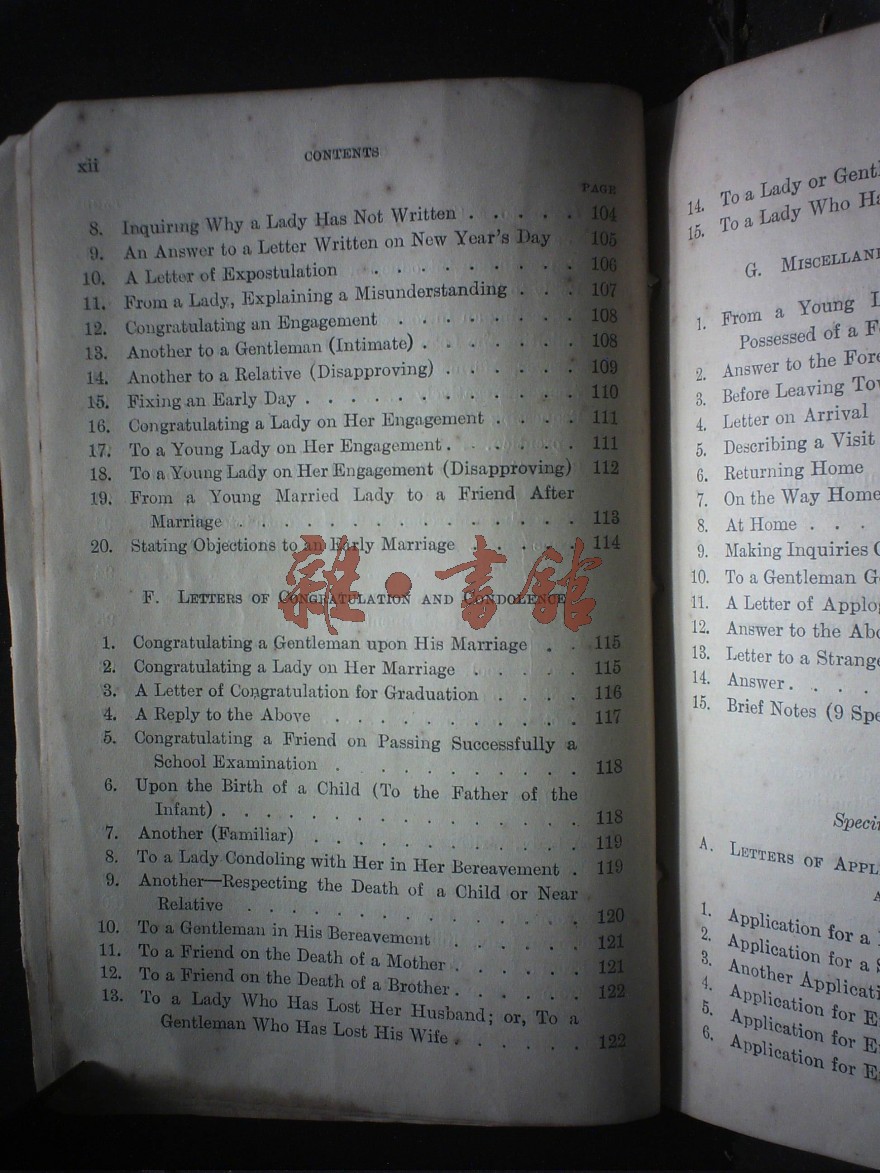 xii
CONTENTS
PAGE
8. Inquiring Why a Lady Has Not Written . . . . . 104
9. An Answer to a Letter Written on New Year's Day 105
10. A Letter of Expostulation . . . . . . . . . 106
11. From a Lady, Explaining a Misunderstanding . . . 107
12. Congratulating an Engagement . . . . . . . . 108
13. Another to a Gentleman (Intimate) . . . . . . . 108
14. Another to a Relative (Disapproving) . . . . . . 109
15. Fixing an Early Day . . . . . . . . . . . . 110
16. Congratulating a Lady on Her Engagement . . . . 111
17. To a Young Lady on Her Engagement . . . . . . 111
18. To a Young Lady on Her Engagement (Disapproving) 112
19. From a Young Married Lady to a Friend After
Marriage . . . . . . . . . . . . . . 113
20. Stating Objections to an Early Marriage . . . . . 114
雜·書館
F. LETTERS OF CONGRATULATION AND CONDOLENCE
1. Congratulating a Gentleman upon His Marriage . . 115
2. Congratulating a Lady on Her Marriage . . . . . 115
3. A Letter of Congratulation for Graduation . . . . 116
4. A Reply to the Above . . . . . . . . . . . 117
5. Congratulating a Friend on Passing Successfully a
School Examination . . . . . . . . . . 118
6. Upon the Birth of a Child (To the Father of the
Infant) . . . . . . . . . . . . . . . 118
7. Another (Familiar) . . . . . . . . . . . . 119
8. To a Lady Condoling with Her in Her Bereavement . 119
9. Another—Respecting the Death of a Child or Near
Relative . . . . . . . . . . . . . . 120
10. To a Gentleman in His Bereavement . . . . . . 121
11. To a Friend on the Death of a Mother . . . . . . 121
12. To a Friend on the Death of a Brother . . . . . . 122
13. To a Lady Who Has Lost Her Husband; or, To a
Gentleman Who Has Lost His Wife . . . . . . 122
14. To a Lady or Gentl
15. To a Lady Who Ha
G. MISCELLANE
1. From a Young L
Possessed of a F
2. Answer to the Fore
3. Before Leaving Tow
4. Letter on Arrival
5. Describing a Visit
6. Returning Home
7. On the Way Home
8. At Home . . .
9. Making Inquiries
10. To a Gentleman G
11. A Letter of Applog
12. Answer to the Abo
13. Letter to a Strange
14. Answer . . . .
15. Brief Notes (9 Spe
Speci
A. LETTERS OF APPL
1. Application for a
2. Application for a S
3. Another Applicati
4. Application for E
5. Application for E
6. Application for E